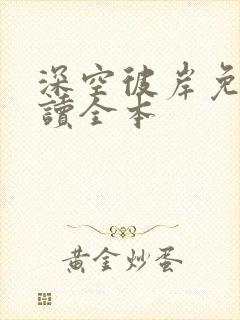 深空彼岸免
讀全本
黃金炒蛋